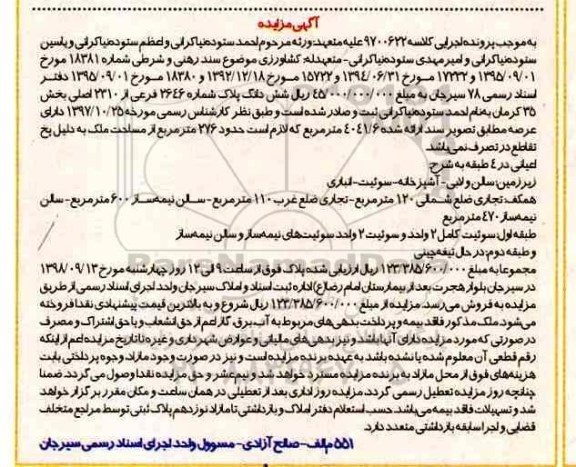 آگهی مزایده
به موجب پرونده اجرایی کلاسه ۹۷۰۰۶۲۲ علیه متعهد: ورثه مرحوم احمد ستوده‌نیاکرانی و اعظم ستوده‌نیاکرانی و یاسین
ستوده‌نیاکرانی و امیرمهدی ستوده‌نیاکرانی- متعهدله: کشاورزی موضوع سند رهنی و شرطی شماره ۱۸۳۸۱ مورخ
۱۳۹۵/۰۹/۰۱ و ۱۷۳۳۲ مورخ ۱۳۹۴/۰۶/۳۱ و ۱۵۷۲۲ مورخ ۱۳۹۲/۱۲/۱۸ و ۱۸۳۸۰ مورخ ۱۳۹۵/۰۹/۰۱ دفتر
اسناد رسمی ۷۸ سیرجان به مبلغ ۴۵/۰۰۰/۰۰۰/۰۰۰ ریال شش دانگ پلاک شماره ۲۶۴۶ فرعی از ۲۳۱۰ اصلی بخش
۳۵ کرمان به‌نام احمد ستوده‌نیاکرانی ثبت و صادر شده است و طبق نظر کارشناس رسمی مورخه ۱۳۹۷/۱۰/۲۵ دارای
عرصه مطابق تصویر سند ارائه شده ۴۰۴۱/۶ مترمربع که لازم است حدود ۲۷۶ مترمربع از مساحت ملک به دلیل پخ
تقاطع در تصرف نمی‌باشد.
اعیانی در ۴ طبقه به شرح:
زیرزمین: سالن و لابی- آشپزخانه- سوئیت- انباری
همکف: تجاری ضلع شمالی ۱۲۰ مترمربع- تجاری ضلع غرب ۱۱۰ مترمربع- سالن نیمه‌ساز ۶۰۰ مترمربع- سالن
نیمه‌ساز ۴۷۰ مترمربع
طبقه اول: سوئیت کامل ۲ واحد و سوئیت ۲ واحد سوئیت‌های نیمه‌ساز و سالن نیمه‌ساز
و طبقه دوم: در حال تیغه‌چینی
مجموعا به مبلغ ۱۲۳/۳۸۵/۶۰۰/۰۰۰ ریال ارزیابی شده پلاک فوق از ساعت ۹ الی ۱۲ روز چهارشنبه مورخ ۱۳۹۸/۰۹/۱۳
در سیرجان بلوار هجرت بعد از بیمارستان امام رضا(ع) اداره ثبت اسناد و املاک سیرجان واحد اجرای اسناد رسمی از طریق
مزایده به فروش می‌رسد. مزایده از مبلغ ۱۲۳/۳۸۵/۶۰۰/۰۰۰ ریال شروع و به بالاترین قیمت پیشنهادی نقدا فروخته
می‌شود. ملک مذکور فاقد بیمه و پرداخت بدهی‌های مربوط به آب، برق، گاز اعم از حق انشعاب و یا حق اشتراک و مصرف
در صورتی که مورد مزایده دارای آنها باشد و نیز بدهی‌های مالیاتی و عوارض شهرداری و غیره تا تاریخ مزایده اعم از اینکه
رقم قطعی آن معلوم شده یا نشده باشد به عهده برنده مزایده است و نیز در صورت وجود مازاد، وجوه پرداختی بابت
هزینه‌های فوق از محل مازاد به برنده مزایده مسترد خواهد شد و نیم‌عشر و حق مزایده نقدا وصول می‌گردد. ضمنا
چنانچه روز مزایده تعطیل رسمی گردد، مزایده روز اداری بعد از تعطیلی در همان ساعت و مکان مقرر برگزار خواهد
شد و تسهیلات فاقد بیمه می‌باشد. حسب استعلام دفتر املاک و بازداشتی تا مازاد نوزدهم پلاک ثبتی توسط مراجع مختلف
قضایی و اجرا سابقه بازداشتی متعدد دارد.
۵۵۱ م‌الف- صالح آزادی- مسوول واحد اجرای اسناد رسمی سیرجان